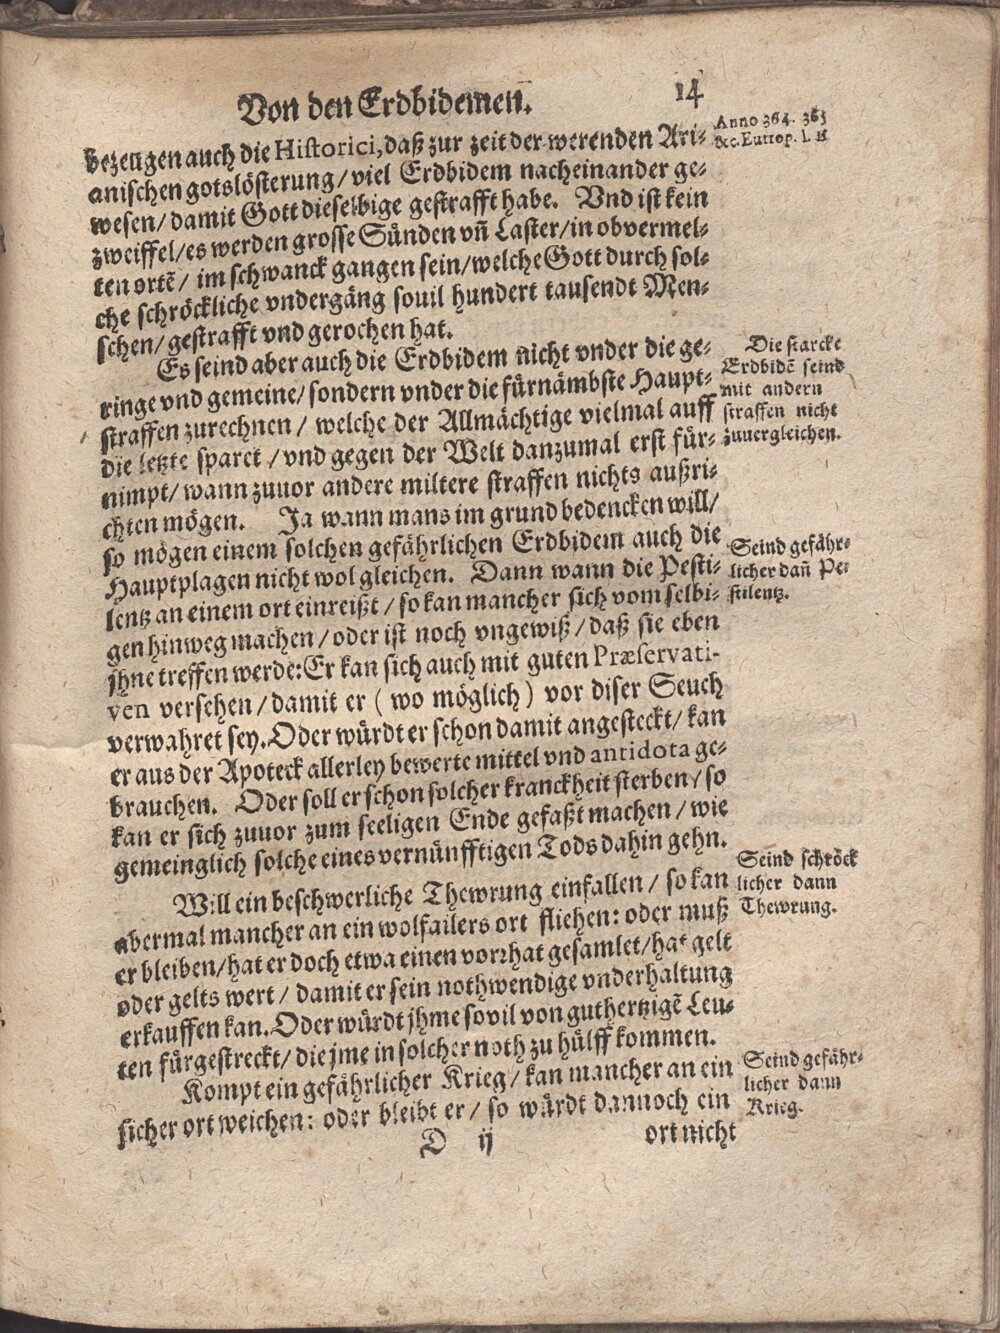 Von den Erdbidemen. 14
bezeugen auch die Historici, daß zur zeit der werenden Ari-
anischen gotslösterung/ viel Erdbidem nacheinander ge-
wesen/ damit Gott dieselbige gestrafft habe. Vnd ist kein
zweiffel/ es werden grosse Sünden vñ Laster/ in obvermel-
ten ortẽ/ im schwanck gangen sein/ welche Gott durch sol-
che schröckliche vndergäng souil hundert tausendt Men-
schen/ gestrafft vnd gerochen hat.
Anno 364. 365
&c. Eutrop. l. 11.
Es seind aber auch die Erdbidem nicht vnder die ge-
ringe vnd gemeine/ sondern vnder die fürnämbste Haupt-
straffen zurechnen/ welche der Allmächtige vielmal auff
die letzte sparet/ vnd gegen der Welt danzumal erst für-
nimpt/ wann zuuor andere miltere straffen nichts außri-
chten mögen. Ja wann mans im grund bedencken will/
so mögen einem solchen gefährlichen Erdbidem auch die
Hauptplagen nicht wol gleichen. Dann wann die Pesti-
lentz an einem ort einreißt/ so kan mancher sich vom selbi-
gen hinweg machen/ oder ist noch vngewiß/ daß sie eben
jhne treffen werde: Er kan sich auch mit guten Præservati-
ven versehen/ damit er ( wo möglich ) vor diser Seuch
verwahret sey. Oder würdt er schon damit angesteckt/ kan
er aus der Apoteck allerley bewerte mittel vnd antidota ge-
brauchen. Oder soll er schon solcher kranckheit sterben/ so
kan er sich zuuor zum seeligen Ende gefaßt machen/ wie
gemeinglich solche eines vernünfftigen Tods dahin gehn.
Die starcke
Erdbidẽ seind
mit andern
straffen nicht
zuuergleichen.
Seind gefähr-
licher dañ Pe-
stilentz.
Will ein beschwerliche Thewrung einfallen/ so kan
abermal mancher an ein wolfailers ort fliehen: oder muß
er bleiben/ hat er doch etwa einen vorrhat gesamlet/ hat gelt
oder gelts wert/ damit er sein nothwendige vnderhaltung
erkauffen kan. Oder würdt jhme sovil von guthertzigẽ Leu-
ten fürgestreckt/ die jme in solcher noth zu hülff kommen.
Seind schröck
licher dann
Thewrung.
Kompt ein gefährlicher Krieg/ kan mancher an ein
sicher ort weichen: oder bleibt er/ so würdt dannoch ein
Seind gefähr-
licher dann
Krieg.
D ij ort nicht